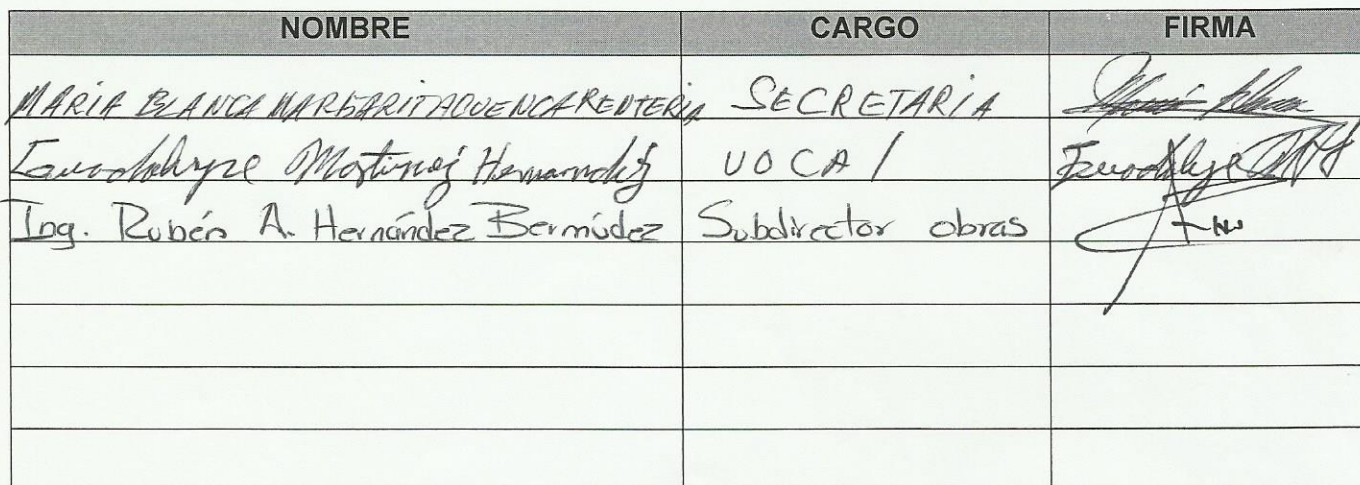 NOMBRE CARGO FIRMA
MARIA BLANCA MARGARITA CUENCA RENTERIA SECRETARIA
Guadalupe Martinez Hernandez VOCAl
Ing. Rubén A. Hernández Bermúdez Subdirector obras